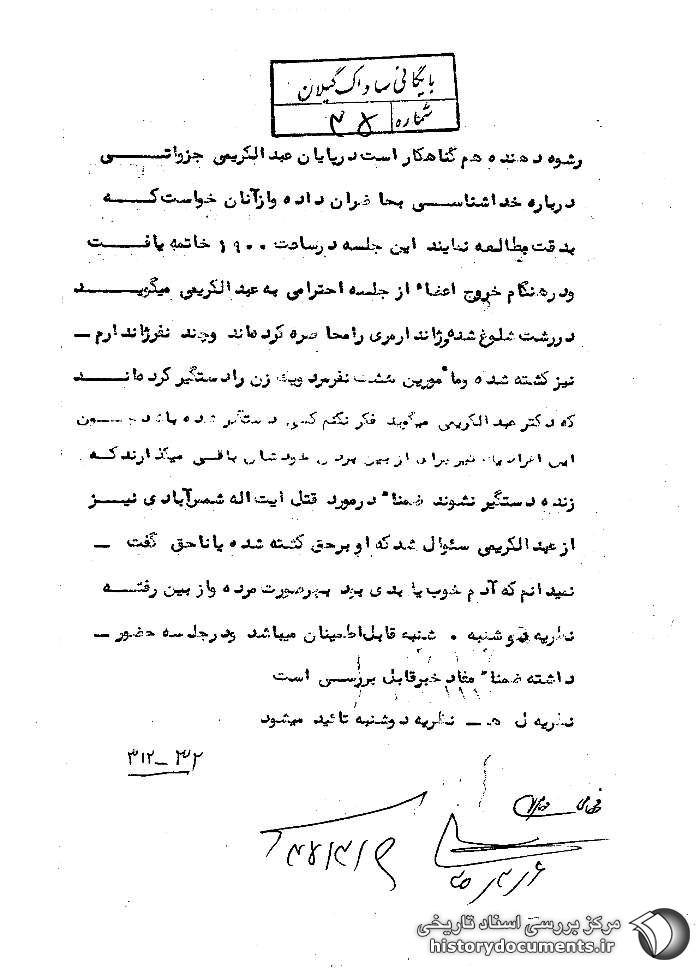 بایگانی ساواک گیلان
شماره ۳۵
رشوه دهنده هم گناهکار است درپایان عبدالکریمی جزواتی
درباره خداشناسی بحاضران داده وازآنان خواست که
بدقت مطالعه نمایند این جلسه درساعت ۱۹۰۰ خاتمه یافت
ودرهنگام خروج اعضاء از جلسه احترامی به عبدالکریمی میگوید
دررشت شلوغ شده وژاندارمری رامحاصره کرده‌اند وچند نفرژاندارم ـ
نیز کشته شده ومأمورین هشت نفرمرد ویک زن رادستگیر کرده‌اند
که دکتر عبدالکریمی میگوید فکر نکنم کسی دستگیر شده باشد چون
این افراد یک تیر برای از بین بردن خودشان باقی میگذارند که
زنده دستگیر نشوند ضمناً درمورد قتل ایت اله شمس‌آبادی نیز
از عبدالکریمی سئوال شد که او برحق کشته شده یا ناحق گفت ـ
نمیدانم که آدم خوب یا بدی بود بهرصورت مرده واز بین رفته
نظریه دوشنبه . شنبه قابل اطمینان میباشد ودرجلسه حضور ـ
داشته ضمناً مفاد خبرقابل بررسی است
نظریه ل هـ ـ نظریه دوشنبه تائید میشود
۳۱۲-۳۲
مرکز بررسی اسناد تاریخی
historydocuments.ir